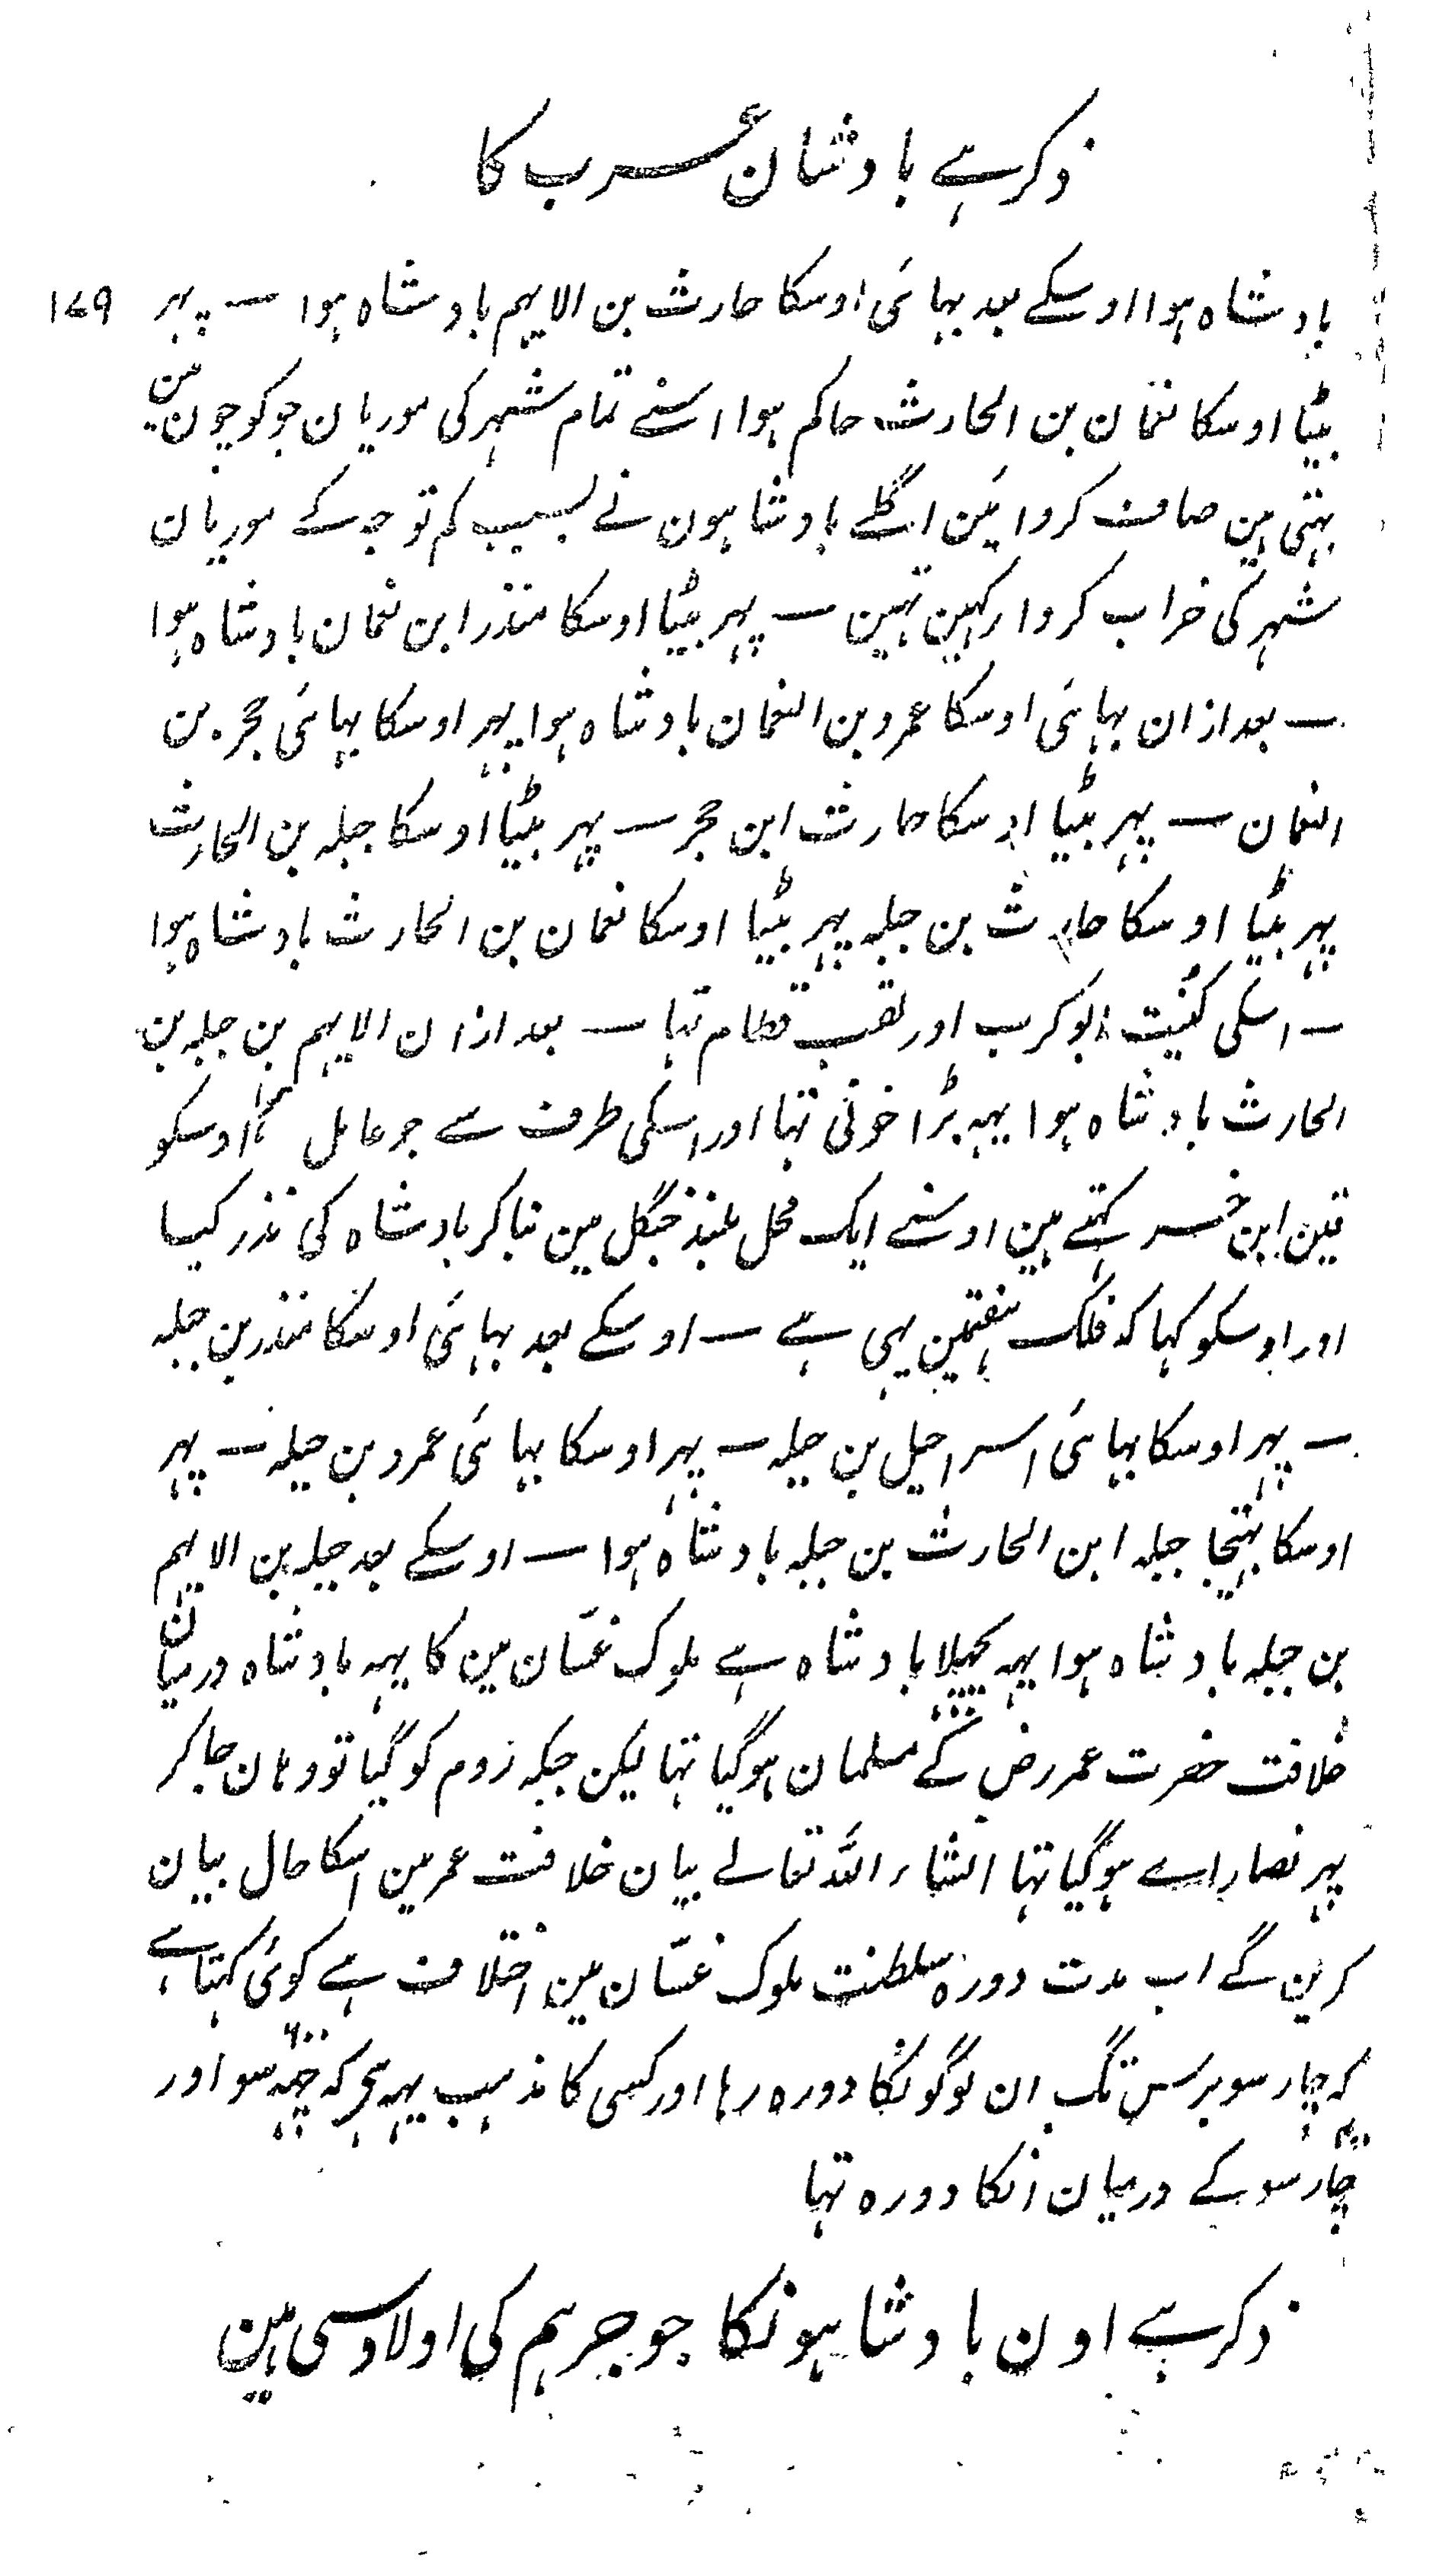 ذکر ہے بادشان عرب کا
۱۷۹
بادشاہ ہوا اوسکے بعد بہائی اوسکا حارث بن الایہم بادشاہ ہوا — پہر
بیٹا اوسکا نعمان بن الحارث حاکم ہوا اسنے تمام شہر کی موریان جو کوچون مین
بہتی ہین صاف کروائین اگلے بادشاہون نے بسبب کم توجہ کے موریان
شہر کی خراب کروا رکہین تہین — پہر بیٹا اوسکا منذر ابن نعمان بادشاہ ہوا
— بعد ازان بہائی اوسکا عمرو بن النعمان بادشاہ ہوا پہر اوسکا بہائی حجر بن
النعمان — پہر بیٹا اوسکا حارث ابن حجر — پہر بیٹا اوسکا جبلہ بن الحارث
پہر بیٹا اوسکا حارث بن جبلہ پہر بیٹا اوسکا نعمان بن الحارث بادشاہ ہوا
— اسکی کنیت ابو کرب اور لقب قطام تہا — بعد ازان الایہم بن جبلہ بن
الحارث بادشاہ ہوا یہہ بڑا خونی تہا اور اسکی طرف سے جو عامل تہا اوسکو
قین ابن خسر کہتے ہین اوسنے ایک محل بلند جنگل مین بناکر بادشاہ کی نذر کیا
اور اوسکو کہا کہ فلک ہفتمین یہی ہے — اوسکے بعد بہائی اوسکا منذر بن جبلہ
— پہر اوسکا بہائی اسراحیل بن جبلہ — پہر اوسکا بہائی عمرو بن جبلہ — پہر
اوسکا بہتیجا جبلہ ابن الحارث بن جبلہ بادشاہ ہوا — اوسکے بعد جبلہ بن الایہم
بن جبلہ بادشاہ ہوا یہہ پچہلا بادشاہ ہے ملوک غسّان مین کا یہہ بادشاہ درمیان
خلافت حضرت عمر رض کے مسلمان ہوگیا تہا لیکن جبکہ روم کو گیا تو وہان جاکر
پہر نصارے ہوگیا تہا انشاء اللہ تعالے بیان خلافت عمر مین اسکا حال بیان
کرین گے اب مدت دورہ سلطنت ملوک غسّان مین اختلاف ہے کوئی کہتا ہے
کہ چار سو برس تگ ان لوگونکا دورہ رہا اور کسی کا مذہب یہہ ہی کہ چہہ سو ۶۰۰ اور
چار سو ۴۰۰ کے درمیان انکا دورہ تہا
ذکر ہے اون بادشاہونکا جو جرہم کی اولاد سی ہین